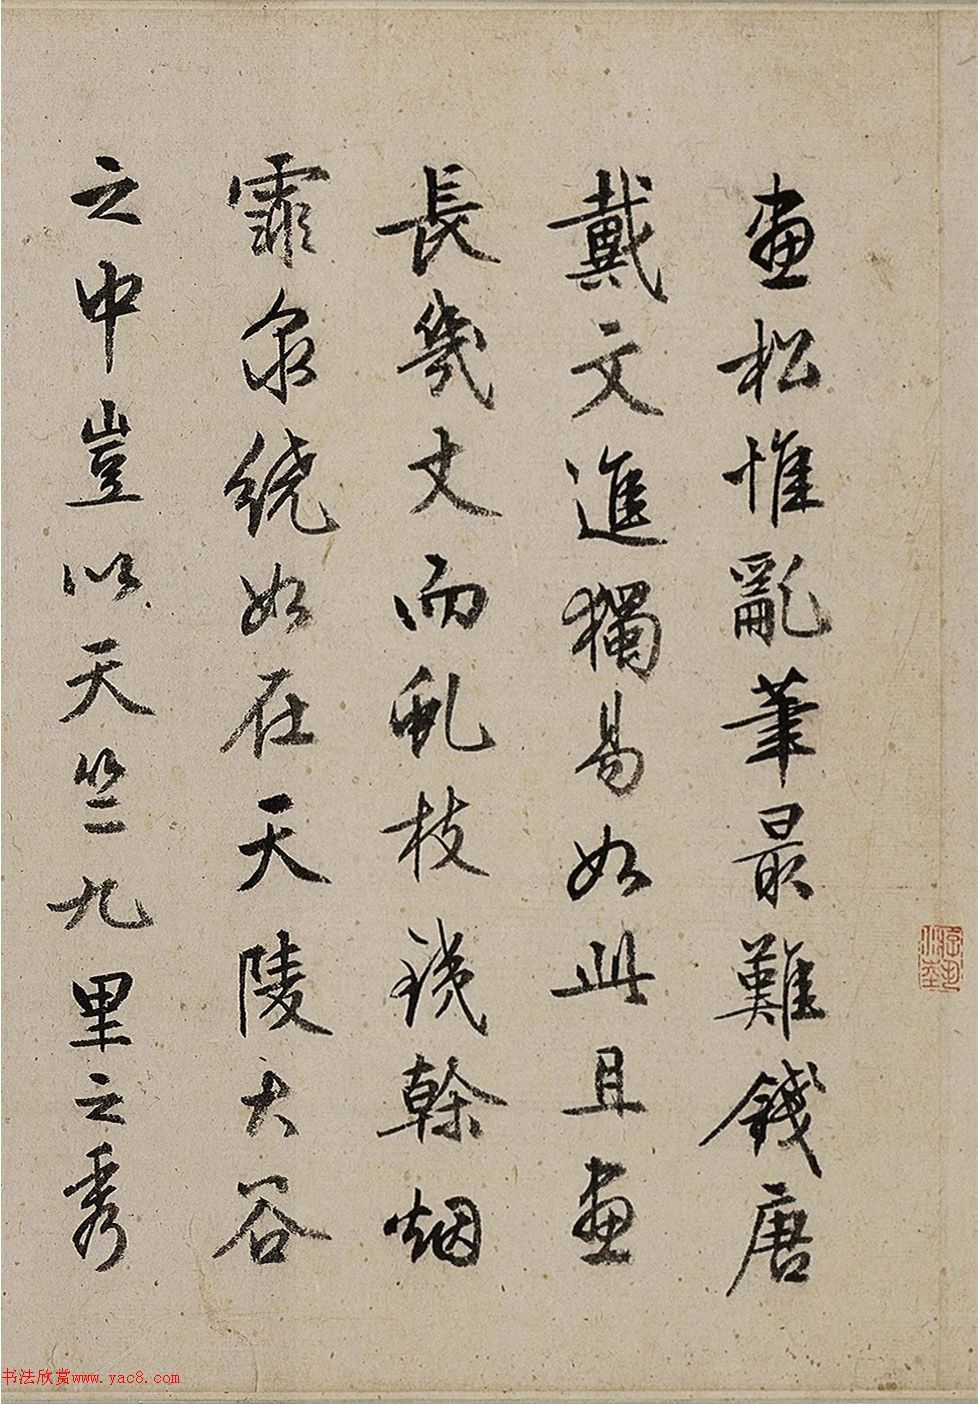 畫松惟亂筆最難錢唐
戴文進獨易如此且畫
長幾丈而乱枝鐵幹烟
霏泉繞如在天陵大谷
之中豈以天竺九里之秀
书法欣赏www.yac8.com